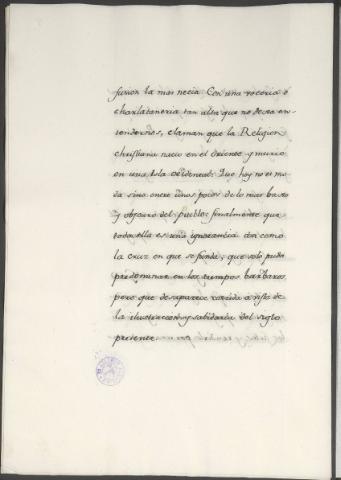 fusion la mas necia. Con una voceria ó
charlataneria tan alta que no desea en-
tenderlos, claman que la Religion
christiana nacio en el Oriente y murio
en una Isla occidental: Que hoy no es mo
da sino entre unos pocos de lo mas baxo
y obscuro del pueblo: finalmente que
toda ella es una ignorancia con como
la cruz en que se funda, que solo pudo
predominar en los tiempos barbaros
pero que desaparece corrida a vista de
la ilustracion y sabiduria del siglo
presente.